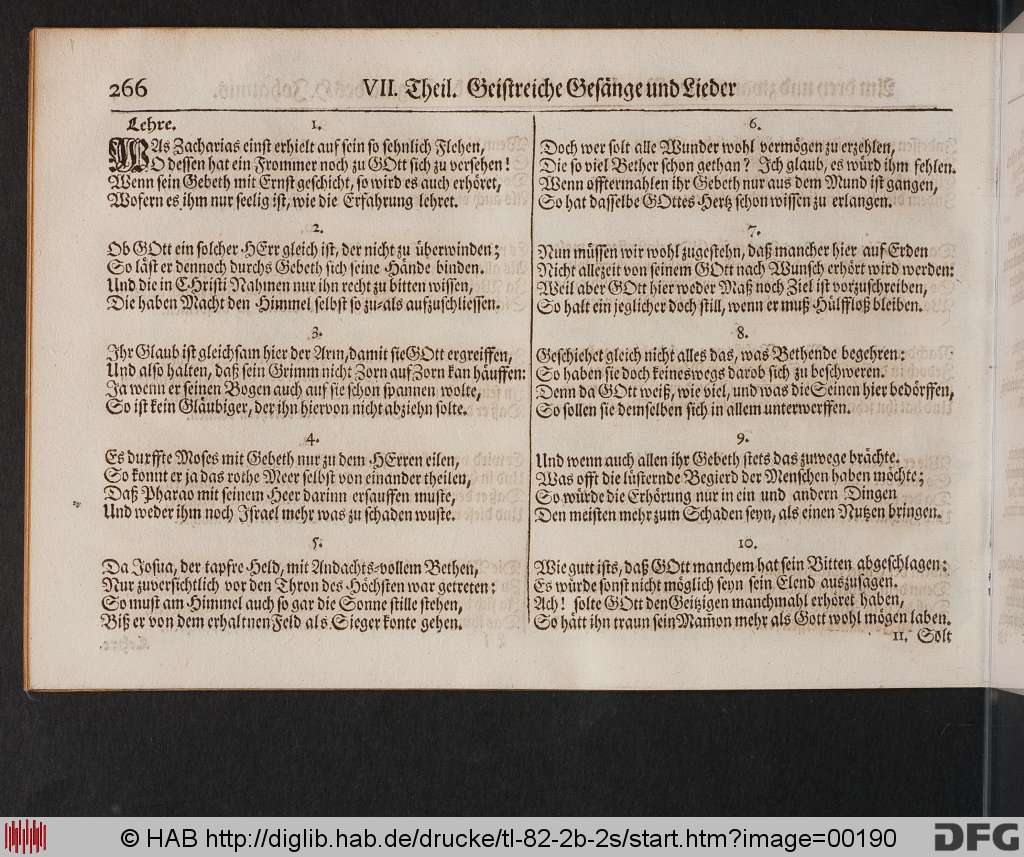 266 VII. Theil. Geistreiche Gesänge und Lieder
Lehre. 1.
WAs Zacharias einst erhielt auf sein so sehnlich Flehen,
O dessen hat ein Frommer noch zu GOtt sich zu versehen!
Wenn sein Gebeth mit Ernst geschicht, so wird es auch erhöret,
Wofern es ihm nur seelig ist, wie die Erfahrung lehret.
2.
Ob GOtt ein solcher HErr gleich ist, der nicht zu überwinden;
So läst er dennoch durchs Gebeth sich seine Hände binden.
Und die in Christi Nahmen nur ihn recht zu bitten wissen,
Die haben Macht den Himmel selbst so zu- als aufzuschliessen.
3.
Ihr Glaub ist gleichsam hier der Arm, damit sie GOtt ergreiffen,
Und also halten, daß sein Grimm nicht Zorn auf Zorn kan häuffen:
Ja wenn er seinen Bogen auch auf sie schon spannen wolte,
So ist kein Gläubiger, der ihn hiervon nicht abziehn solte.
4.
Es durffte Moses mit Gebeth nur zu dem HErren eilen,
So konnt er ja das rothe Meer selbst von einander theilen,
Daß Pharao mit seinem Heer darinn ersauffen muste,
Und weder ihm noch Israel mehr was zu schaden wuste.
5.
Da Josua, der tapfre Held, mit Andachts-vollem Bethen,
Nur zuversichtlich vor den Thron des Höchsten war getreten;
So must am Himmel auch so gar die Sonne stille stehen,
Biß er von dem erhaltnen Feld als Sieger konte gehen.
6.
Doch wer solt alle Wunder wohl vermögen zu erzehlen,
Die so viel Bether schon gethan? Ich glaub, es würd ihm fehlen.
Wenn offtermahlen ihr Gebeth nur aus dem Mund ist gangen,
So hat dasselbe GOttes Hertz schon wissen zu erlangen.
7.
Nun müssen wir wohl zugestehn, daß mancher hier auf Erden
Nicht allezeit von seinem GOtt nach Wunsch erhört wird werden:
Weil aber GOtt hier weder Maß noch Ziel ist vorzuschreiben,
So halt ein jeglicher doch still, wenn er muß Hülffloß bleiben.
8.
Geschiehet gleich nicht alles das, was Bethende begehren:
So haben sie doch keineswegs darob sich zu beschweren.
Denn da GOtt weiß, wie viel, und was die Seinen hier bedörffen,
So sollen sie demselben sich in allem unterwerffen.
9.
Und wenn auch allen ihr Gebeth stets das zuwege brächte.
Was offt die lüsternde Begierd der Menschen haben möchte;
So würde die Erhörung nur in ein und andern Dingen
Den meisten mehr zum Schaden seyn, als einen Nutzen bringen.
10.
Wie gutt ists, daß GOtt manchem hat sein Bitten abgeschlagen;
Es würde sonst nicht möglich seyn sein Elend auszusagen.
Ach! solte GOtt den Geitzigen manchmahl erhöret haben,
So hätt ihn traun sein Mam̃on mehr als Gott wohl mögen laben.
11. Solt
© HAB http://diglib.hab.de/drucke/tl-82-2b-2s/start.htm?image=00190
DFG